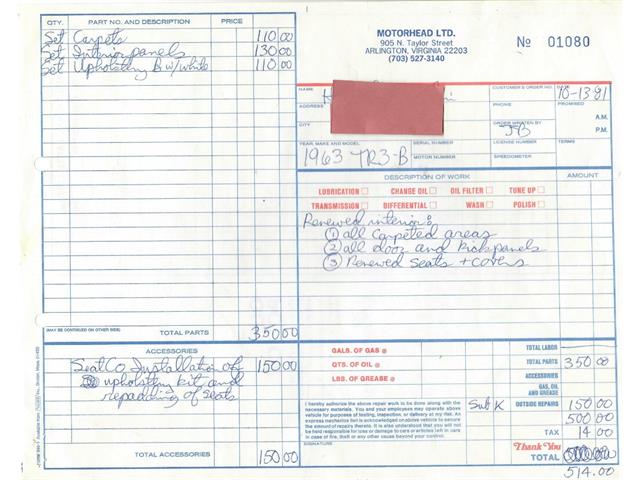 QTY. PART NO. AND DESCRIPTION PRICE
Set Carpets 110 00
Set Interior panels 130 00
Set Upholstery B w/white 110 00
(MAY BE CONTINUED ON OTHER SIDE) TOTAL PARTS 350 00
ACCESSORIES
SeatCo Installation of 150 00
upholstery kit and
repadding of seats
TOTAL ACCESSORIES 150 00
MOTORHEAD LTD.
905 N. Taylor Street
ARLINGTON, VIRGINIA 22203
(703) 527-3140
No 01080
NAME CUSTOMER'S ORDER NO. DATE
10-13 81
ADDRESS PHONE PROMISED
A.M.
CITY ORDER WRITTEN BY
JB P.M.
YEAR, MAKE AND MODEL SERIAL NUMBER LICENSE NUMBER TERMS
1963 TR3-B MOTOR NUMBER SPEEDOMETER
DESCRIPTION OF WORK AMOUNT
LUBRICATION CHANGE OIL OIL FILTER TUNE UP
TRANSMISSION DIFFERENTIAL WASH POLISH
Renewed interior:
1 all Carpeted areas
2 all door and kickpanels
3 Renewed Seats + covers
GALS. OF GAS @ TOTAL LABOR
QTS. OF OIL @ TOTAL PARTS 350 00
LBS. OF GREASE @ ACCESSORIES
GAS, OIL
AND GREASE
I hereby authorize the above repair work to be done along with the
necessary materials. You and your employees may operate above
vehicle for purposes of testing, inspection, or delivery at my risk. An
express mechanics lien is acknowledged on above vehicle to secure
the amount of repairs thereto. It is also understood that you will not
be held responsible for loss or damage to cars or articles left in cars
in case of fire, theft or any other cause beyond your control.
Sub K OUTSIDE REPAIRS 150 00
500 00
TAX 14 00
SIGNATURE
Thank You TOTAL
514.00